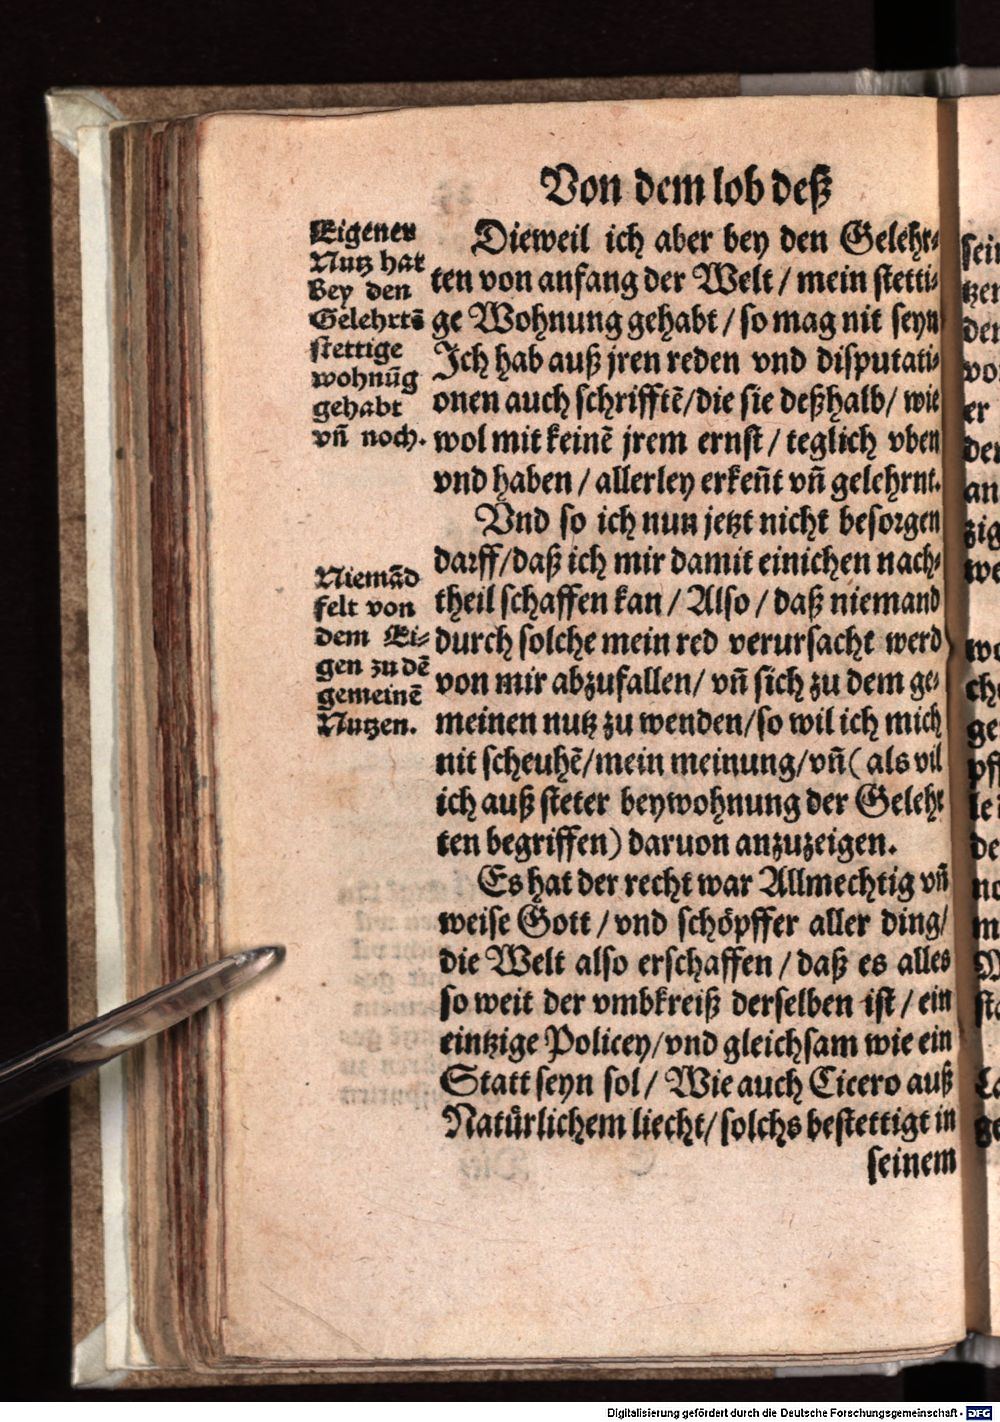 Von dem lob deß
Eigener
Nutz hat
bey den
Gelehrtẽ
stettige
wohnũg
gehabt
vñ noch.
Dieweil ich aber bey den Gelehr-
ten von anfang der Welt / mein stetti-
ge Wohnung gehabt / so mag nit seyn
Ich hab auß jren reden vnd disputati-
onen auch schrifftẽ/die sie deßhalb/ wie
wol mit keinẽ jrem ernst / teglich vben
vnd haben / allerley erkeñt vñ gelehrnt.
Vnd so ich nun jetzt nicht besorgen
darff/daß ich mir damit einichen nach-
theil schaffen kan / Also / daß niemand
durch solche mein red verursacht werd
von mir abzufallen/ vñ sich zu dem ge-
meinen nutz zu wenden/so wil ich mich
nit scheuhẽ/mein meinung/vñ( als vil
ich auß steter beywohnung der Gelehr
ten begriffen) daruon anzuzeigen.
Niemãd
felt von
dem Ei-
gen zu dẽ
gemeinẽ
Nutzen.
Es hat der recht war Allmechtig vñ
weise Gott / vnd schöpffer aller ding/
die Welt also erschaffen / daß es alles
so weit der vmbkreiß derselben ist / ein
eintzige Policey/vnd gleichsam wie ein
Statt seyn sol/ Wie auch Cicero auß
Natürlichem liecht/ solchs bestettigt in
seinem
Digitalisierung gefördert durch die Deutsche Forschungsgemeinschaft - DFG